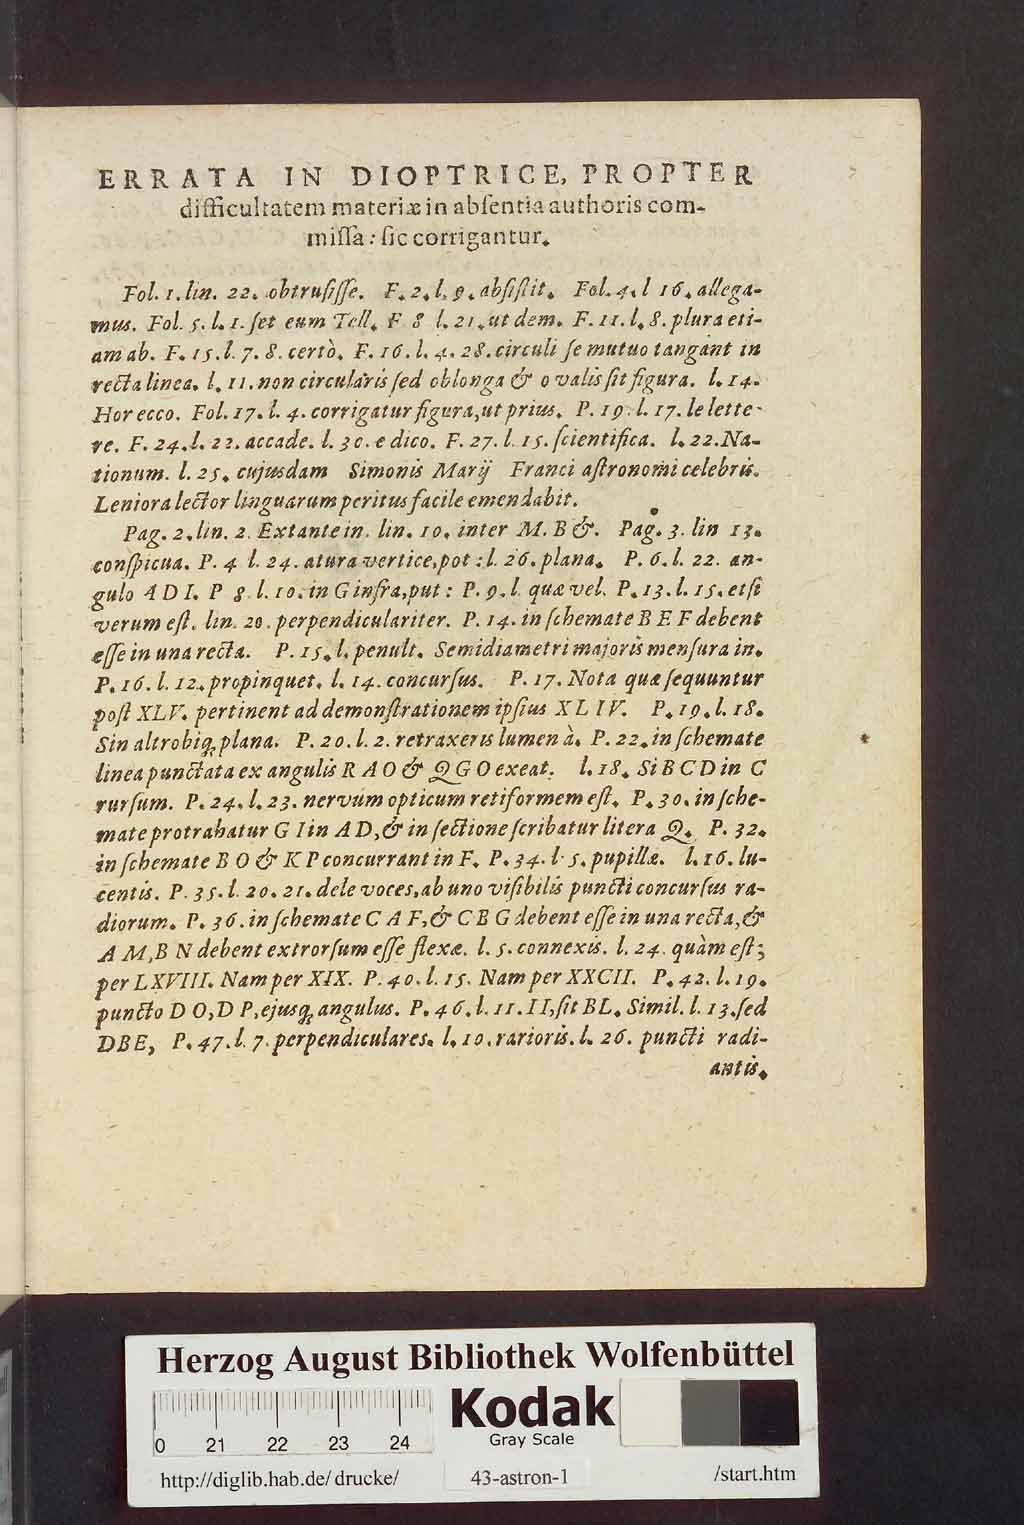 ERRATA IN DIOPTRICE, PROPTER
difficultatem materiæ in abſentia authoris com-
miſſa: ſic corrigantur.
Fol. 1. lin. 22. obtruſiſſe. F. 2. l. 9. abſiſtit. Fol. 4. l 16. allega-
mus. Fol. 5. l. 1. ſet eum Tell. F 8 l. 21. ut dem. F. 11. l. 8. plura eti-
am ab. F. 15. l. 7. 8. certò. F. 16. l. 4. 28. circuli ſe mutuo tangant in
recta linea. l. 11. non circularis ſed oblonga & ovalis ſit figura. l. 14.
Hor ecco. Fol. 17. l. 4. corrigatur figura, ut prius. P. 19. l. 17. le lette-
re. F. 24. l. 22. accade. l. 30. e dico. F. 27. l. 15. ſcientifica. l. 22. Na-
tionum. l. 25. cujusdam Simonis Marij Franci aſtronomi celebris.
Leniora lector linguarum peritus facile emendabit.
Pag. 2. lin. 2. Extante in. lin. 10. inter M. B &. Pag. 3. lin 13.
conſpicua. P. 4 l. 24. atura vertice, pot: l. 26. plana. P. 6. l. 22. an-
gulo A D I. P 8. l. 10. in G infra, put: P. 9. l. quæ vel. P. 13. l. 15. etſi
verum eſt. lin. 20. perpendiculariter. P. 14. in ſchemate B E F debent
eſſe in una recta. P. 15. l. penult. Semidiametri majoris menſura in.
P. 16. l. 12. propinquet. l. 14. concurſus. P. 17. Nota quæ ſequuntur
poſt XLV. pertinent ad demonſtrationem ipſius XLIV. P. 19. l. 18.
Sin altrobiq; plana. P. 20. l. 2. retraxeris lumen à. P. 22. in ſchemate
linea punctata ex angulis R A O & Q G O exeat. l. 18. Si B C D in C
rurſum. P. 24. l. 23. nervum opticum retiformem eſt. P. 30. in ſche-
mate protrahatur G I in A D, & in ſectione ſcribatur litera Q. P. 32.
in ſchemate B O & K P concurrant in F. P. 34. l. 5. pupillæ. l. 16. lu-
centis. P. 35. l. 20. 21. dele voces, ab uno viſibilis puncti concurſus ra-
diorum. P. 36. in ſchemate C A F, & C B G debent eſſe in una recta, &
A M, B N debent extrorſum eſſe flexæ. l. 5. connexis. l. 24. quàm eſt;
per LXVIII. Nam per XIX. P. 40. l. 15. Nam per XXCII. P. 42. l. 19.
puncto D O, D P, ejusq; angulus. P. 46. l. 11. II, ſit BL. Simil. l. 13. ſed
DBE, P. 47. l. 7. perpendiculares. l. 10. rarioris. l. 26. puncti radi-
antis.
Herzog August Bibliothek Wolfenbüttel
Kodak
Gray Scale
0 21 22 23 24
http://diglib.hab.de/drucke/ 43-astron-1 /start.htm